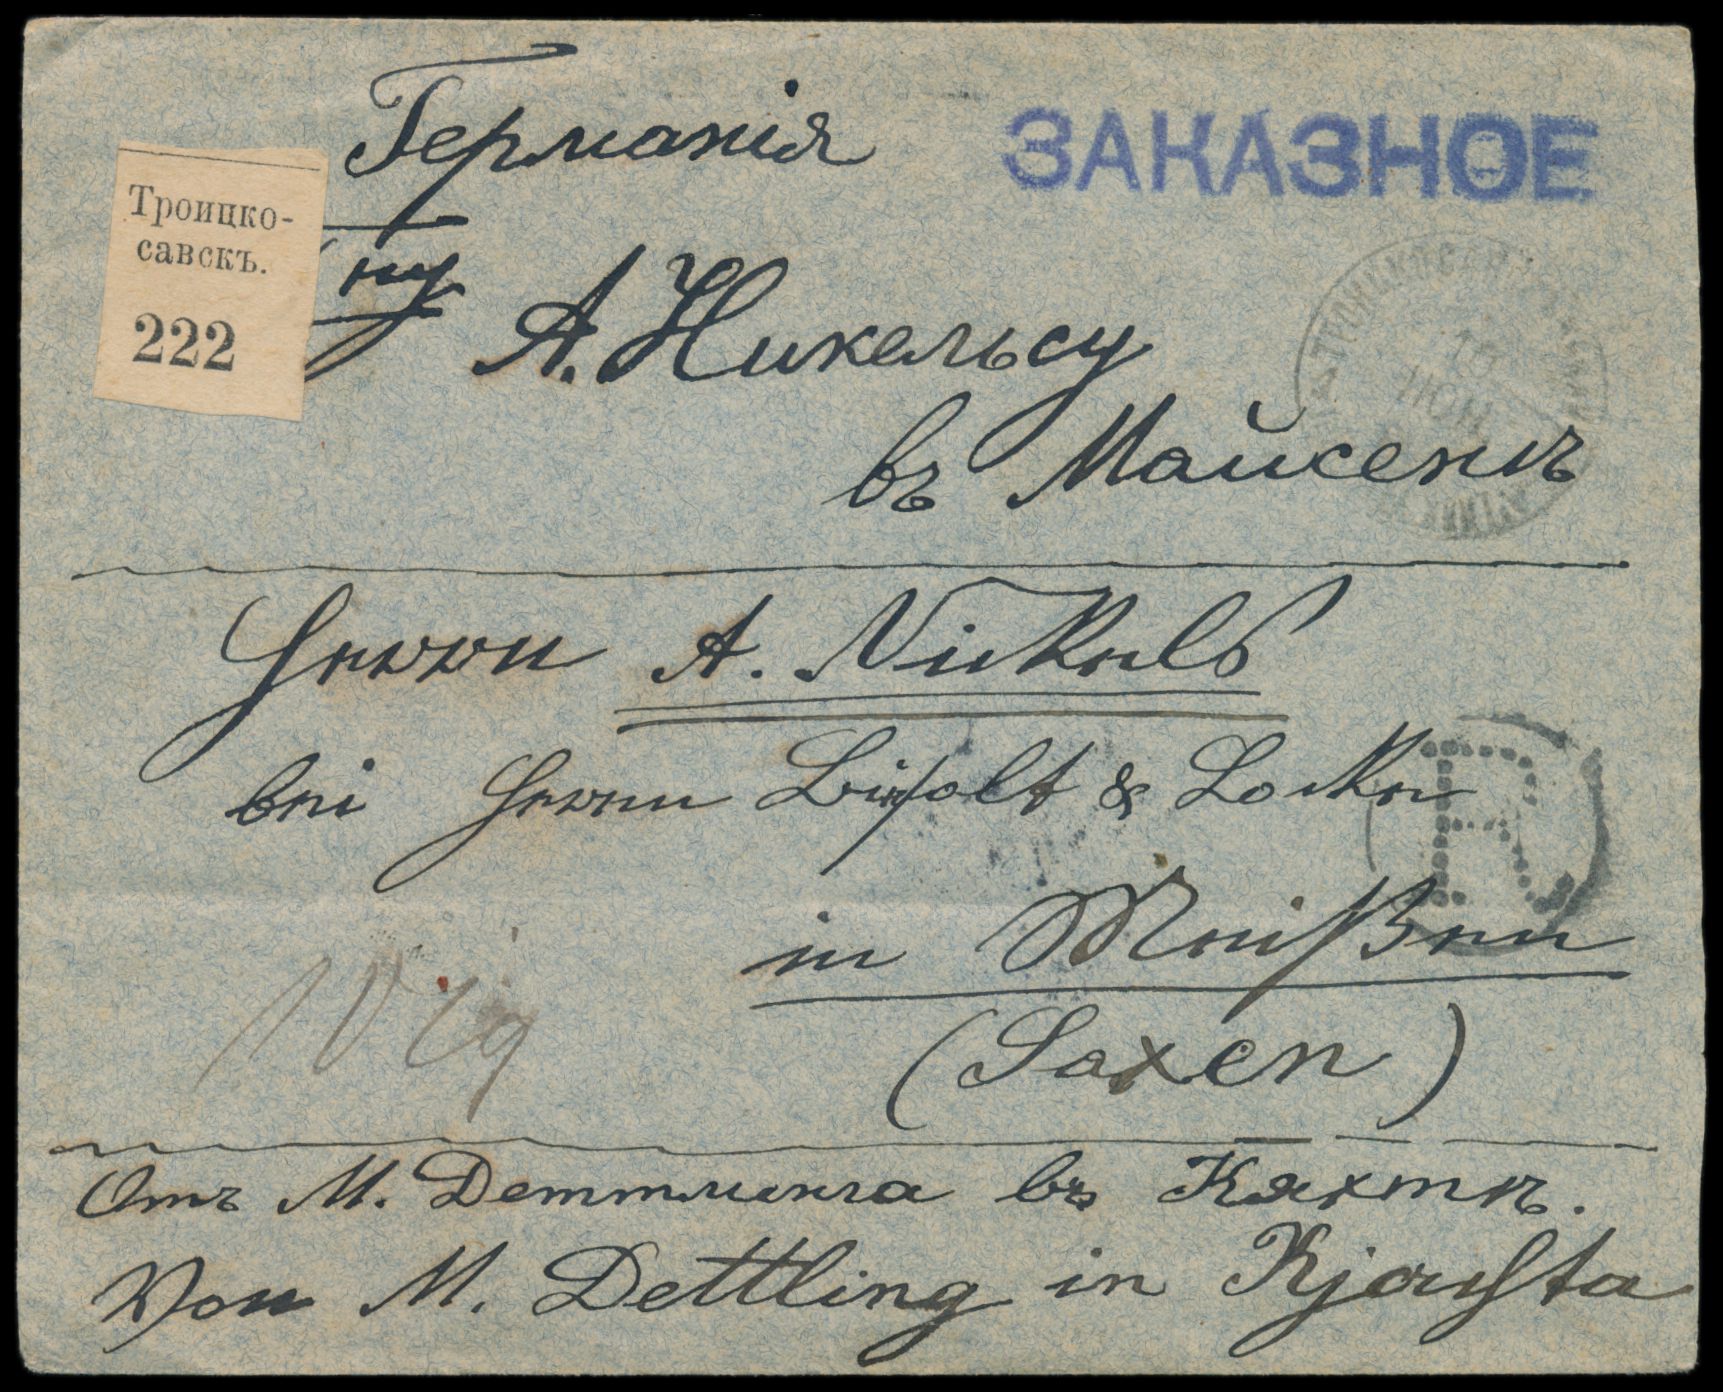 Германія
ЗАКАЗНОЕ
Троицко-
савскъ.
222
ну
А. Никельсу
въ Майсенъ
ІЮН
Herrn A. Nickels
bei Herrn & Locke
R
in Meißen
(Saxen)
Отъ М. Деттлинга въ Кяхтѣ.
Von M. Dettling in Kjachta